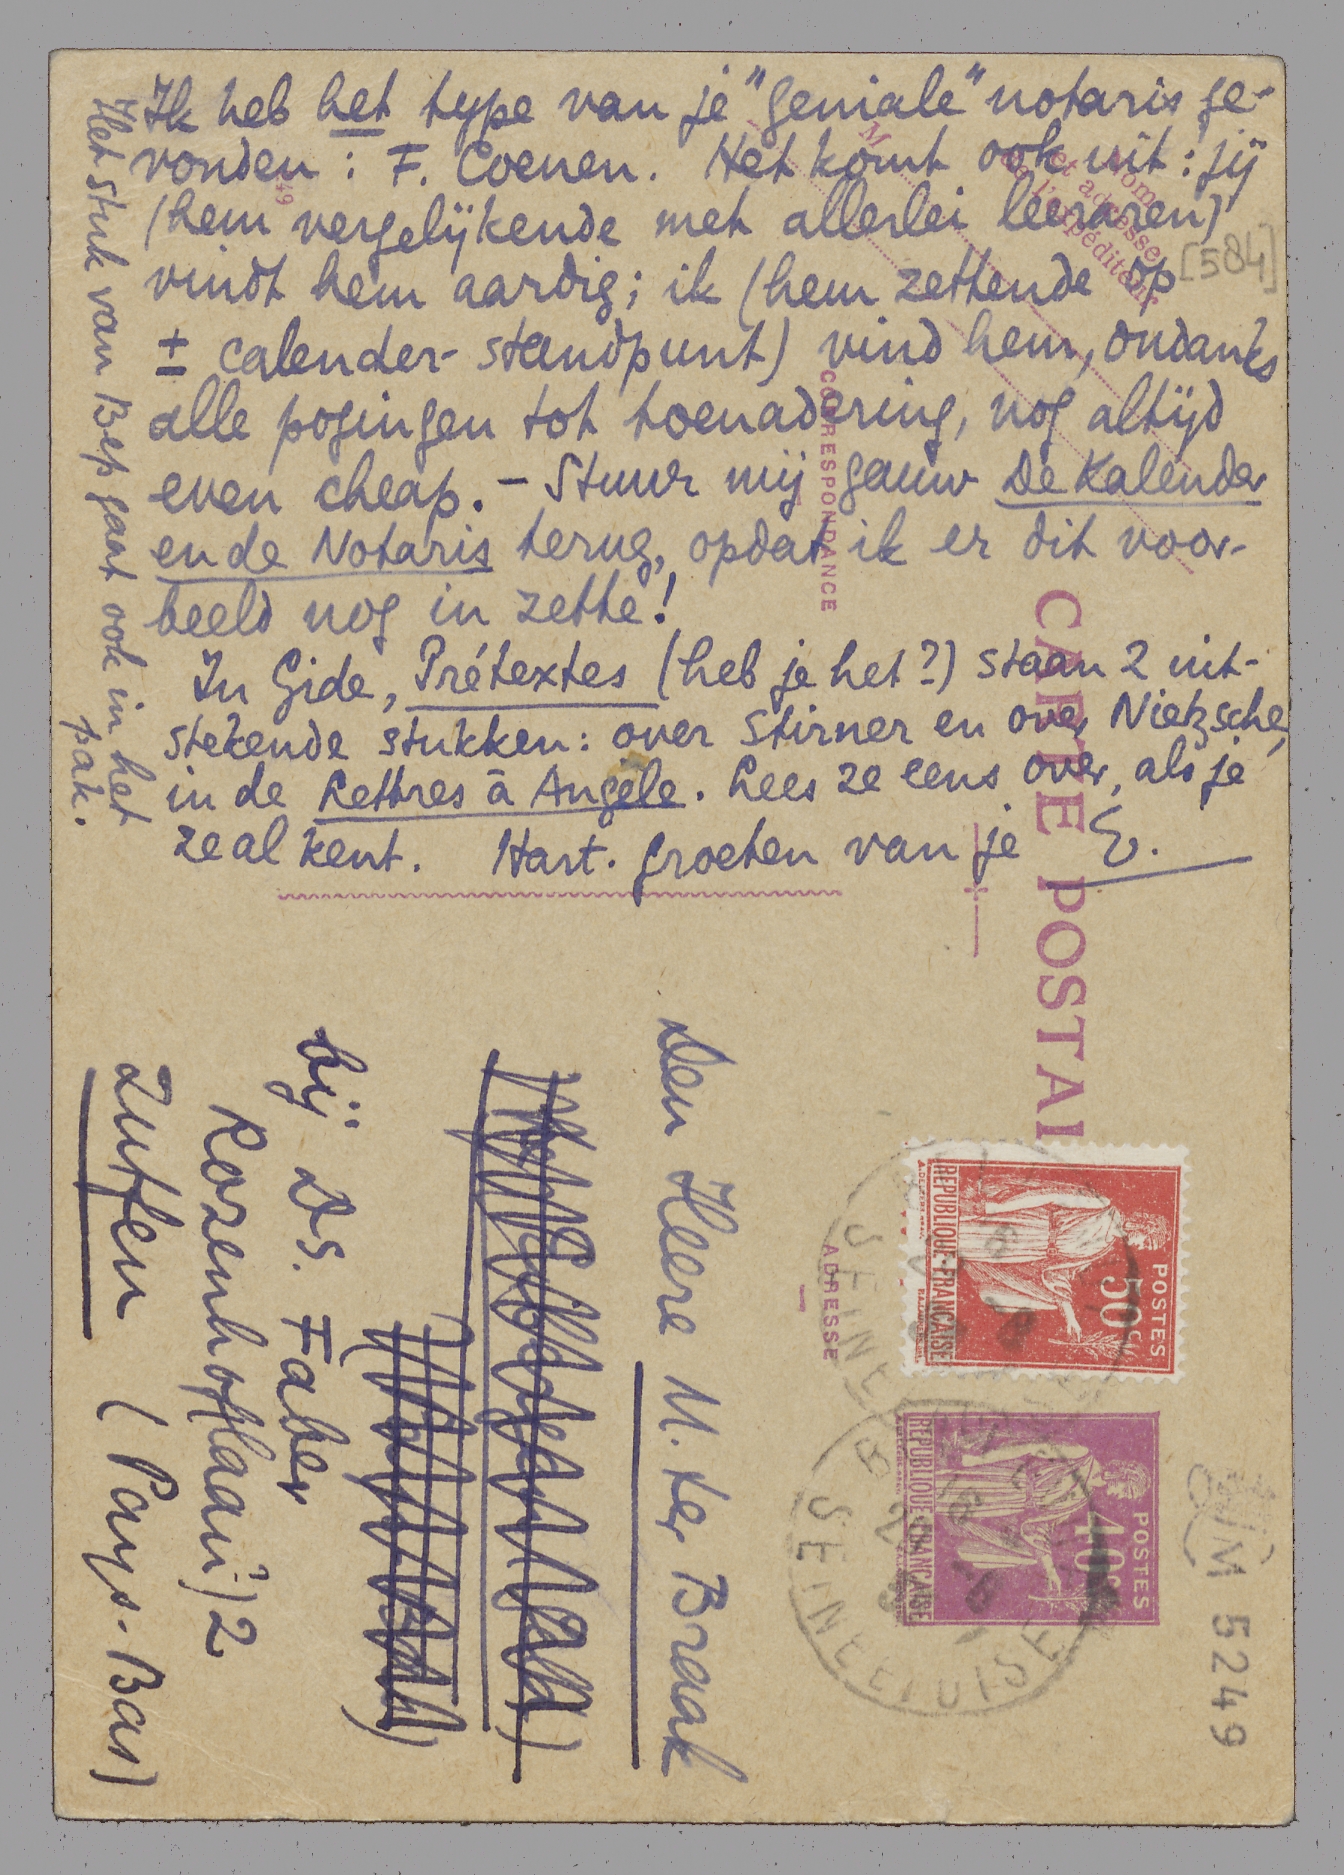 Ik heb het type van je "geniale" notaris ge-
vonden: F. Coenen. Het komt ook uit: jij
(hem vergelijkende met allerlei leeraren)
vindt hem aardig; ik (hem zettende op
± calender-standpunt) vind hem, ondanks
alle pogingen tot toenadering, nog altijd
even cheap. – Stuur mij gauw De Kalender
en de Notaris terug, opdat ik er dit voor-
beeld nog in zette!
In Gide, Prétextes (heb je het?) staan 2 uit-
stekende stukken: over Stirner en over Nietzsche,
in de Lettres à Angèle. Lees ze eens over, als je
ze al kent. Hart. groeten van je E.
Het stuk van Bep gaat ook in het
pak.
[584]
Noms
et adresse
de l'expéditeur
M
49
CORRESPONDANCE
CARTE POSTAL
ADRESSE
POSTES
50c
REPUBLIQUE-FRANÇAISE
POSTES
40c
REPUBLIQUE-FRANÇAISE
SEINE
SEINE ET OISE
M 5249
Den Heere M. ter Braak
bij Ds. Faber
Rozenhoflaan 2
Zutfen (Pays-Bas)